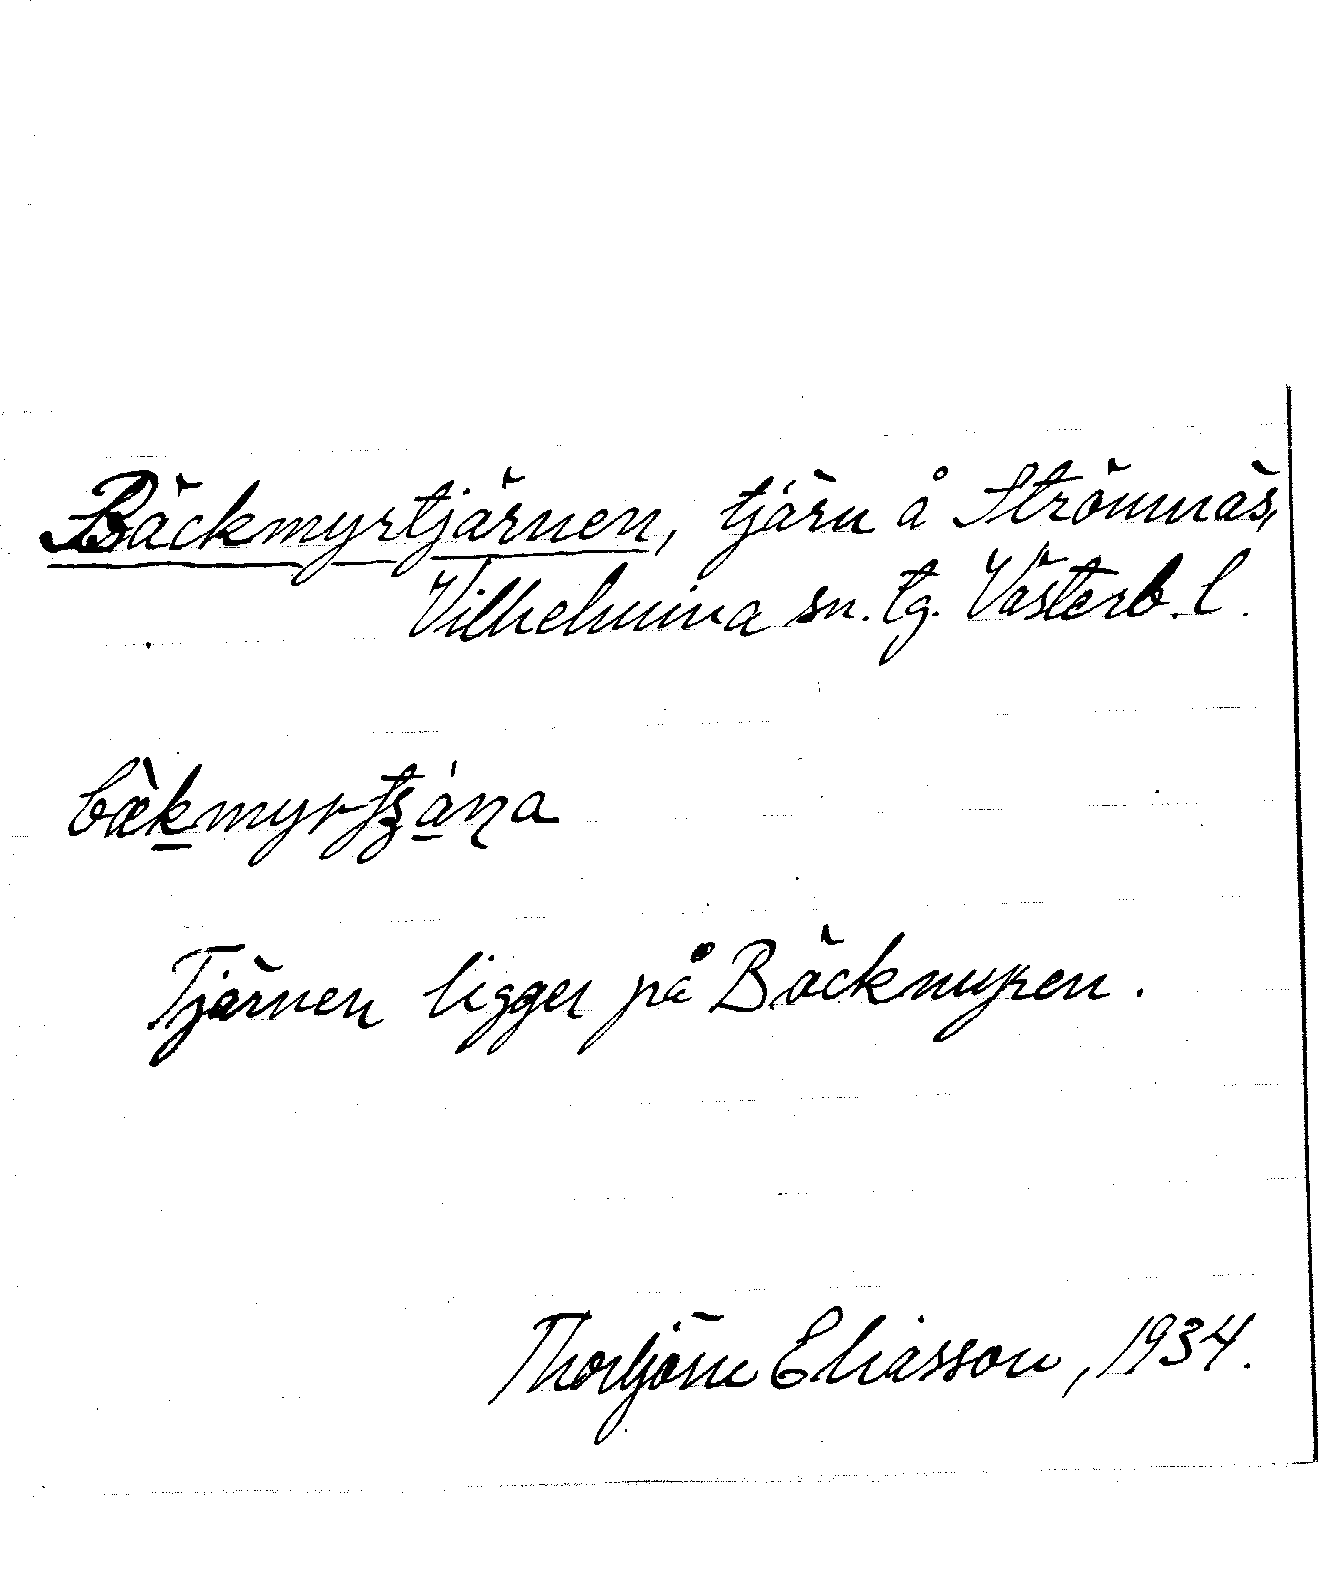 Bäckmyrtjärnen, tjärn å Strömnäs,
Vilhelmina sn. tg. Västerb. l.
Tjärnen ligger på Bäckmyren.
Thorbjörn Eliasson, 1934.